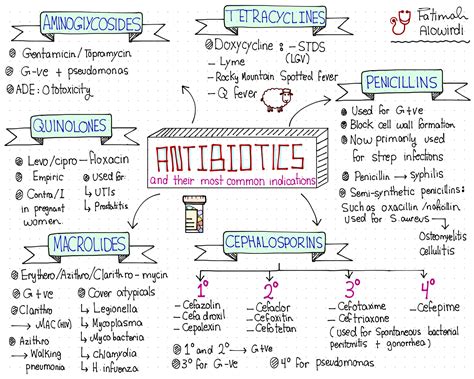 AMINOGLYCOSIDES
Gentamicin/Topramycin
G-ve + pseudomonas
ADE: Ototoxicity
TETRACYCLINES
Doxycycline: - STDS
(LGV)
- Lyme
- Rocky Mountain Spotted fever
- Q fever
Fatimah
Alowirdi
PENICILLINS
Used for G+ve
Block cell wall formation
Now primarily used
for strep infections
Penicillin → syphilis
Semi-synthetic penicillins:
Such as oxacillin/nafcillin
used for S.aureus
Osteomyelitis
cellulitis
QUINOLONES
Levo/cipro-floxacin
Empiric
Contra/I
in pregnant
women.
used for
↳ UTIs
↳ Prostatitis
ANTIBIOTICS
and their most common indications
MACROLIDES
Erythero/Azithro/Clarithro-mycin
G+ve
Clarithro
→ MAC (HIV)
Azithro
→ Walking
pneumonia
Cover atypicals
↳ Legionella
↳ Mycoplasma
↳ Mycobacteria
↳ chlamydia
↳ H.infuenza
CEPHALOSPORINS
1°
- Cefazolin
- Cefadroxil
- Cepalexin
2°
- Cefaclor
- Cefoxitin
- Cefotetan
3°
- Cefotaxime
- Ceftriaxone
(used for Spontaneous bacterial
penitritis + gonorrhea)
4°
- Cefepime
1° and 2° → G+ve
3° for G-ve
4° for pseudomonas